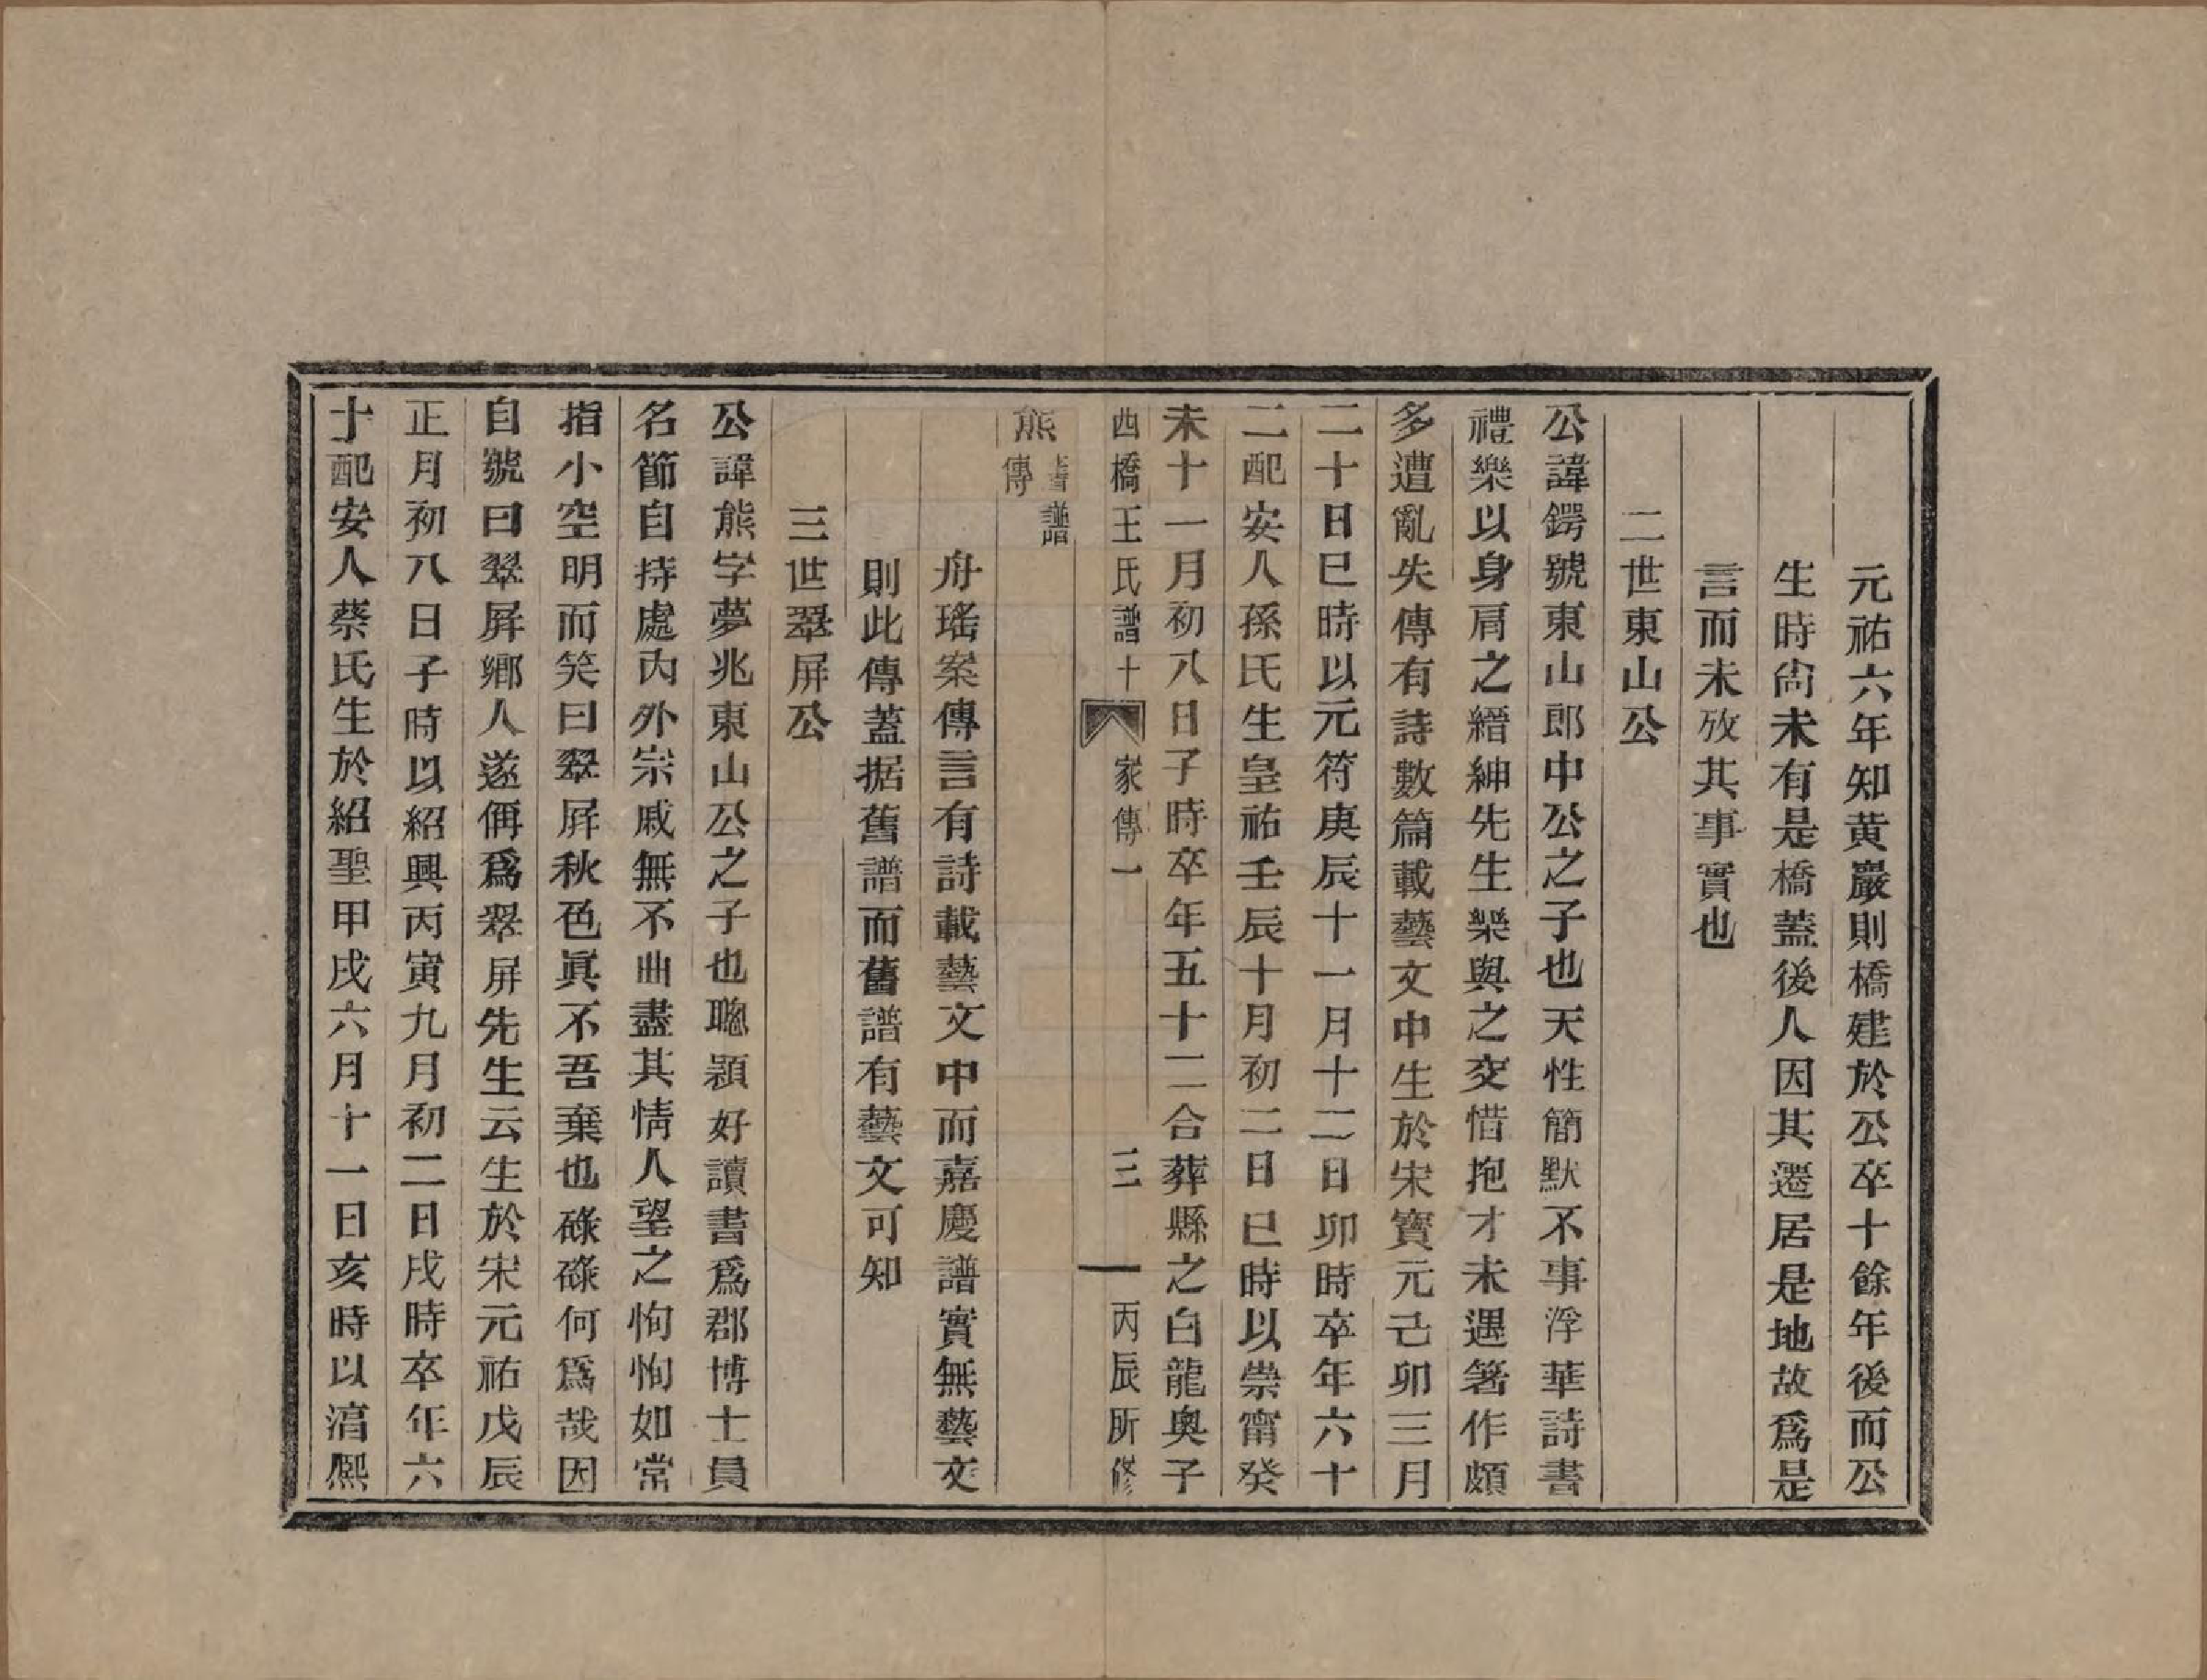 元祐六年知黄巖則橋建於公卒十餘年後而公
生時尙未有是橋蓋後人因其遷居是地故爲是
言而未攷其事實也
二世東山公
公諱鍔號東山郎中公之子也天性簡默不事浮華詩書
禮樂以身肩之縉紳先生樂與之交惜抱才未遇箸作頗
多遭亂失傳有詩數篇載藝文中生於宋寶元己卯三月
二十日巳時以元符庚辰十一月十二日卯時卒年六十
二配安人孫氏生皇祐壬辰十月初二日巳時以崇甯癸
未十一月初八日子時卒年五十二合葬縣之白龍奥子
西橋王氏譜十 家傳一 三 丙辰所修
熊 舊譜傳
舟瑤案傳言有詩載藝文中而嘉慶譜實無藝文
則此傳蓋据舊譜而舊譜有藝文可知
三世翠屏公
公諱熊字夢兆東山公之子也聰穎好讀書爲郡博士員
名節自持處內外宗戚無不曲盡其情人望之恂恂如常
指小空明而笑曰翠屏秋色眞不吾棄也碌碌何爲哉因
自號曰翠屏鄉人遂偁爲翠屏先生云生於宋元祐戊辰
正月初八日子時以紹興丙寅九月初二日戌時卒年六
十配安人蔡氏生於紹聖甲戌六月十一日亥時以淯熈